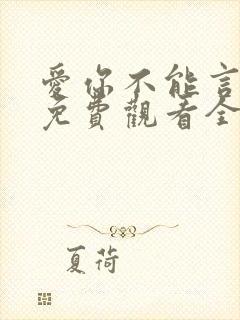 愛你不能言
免費觀看全
夏荷